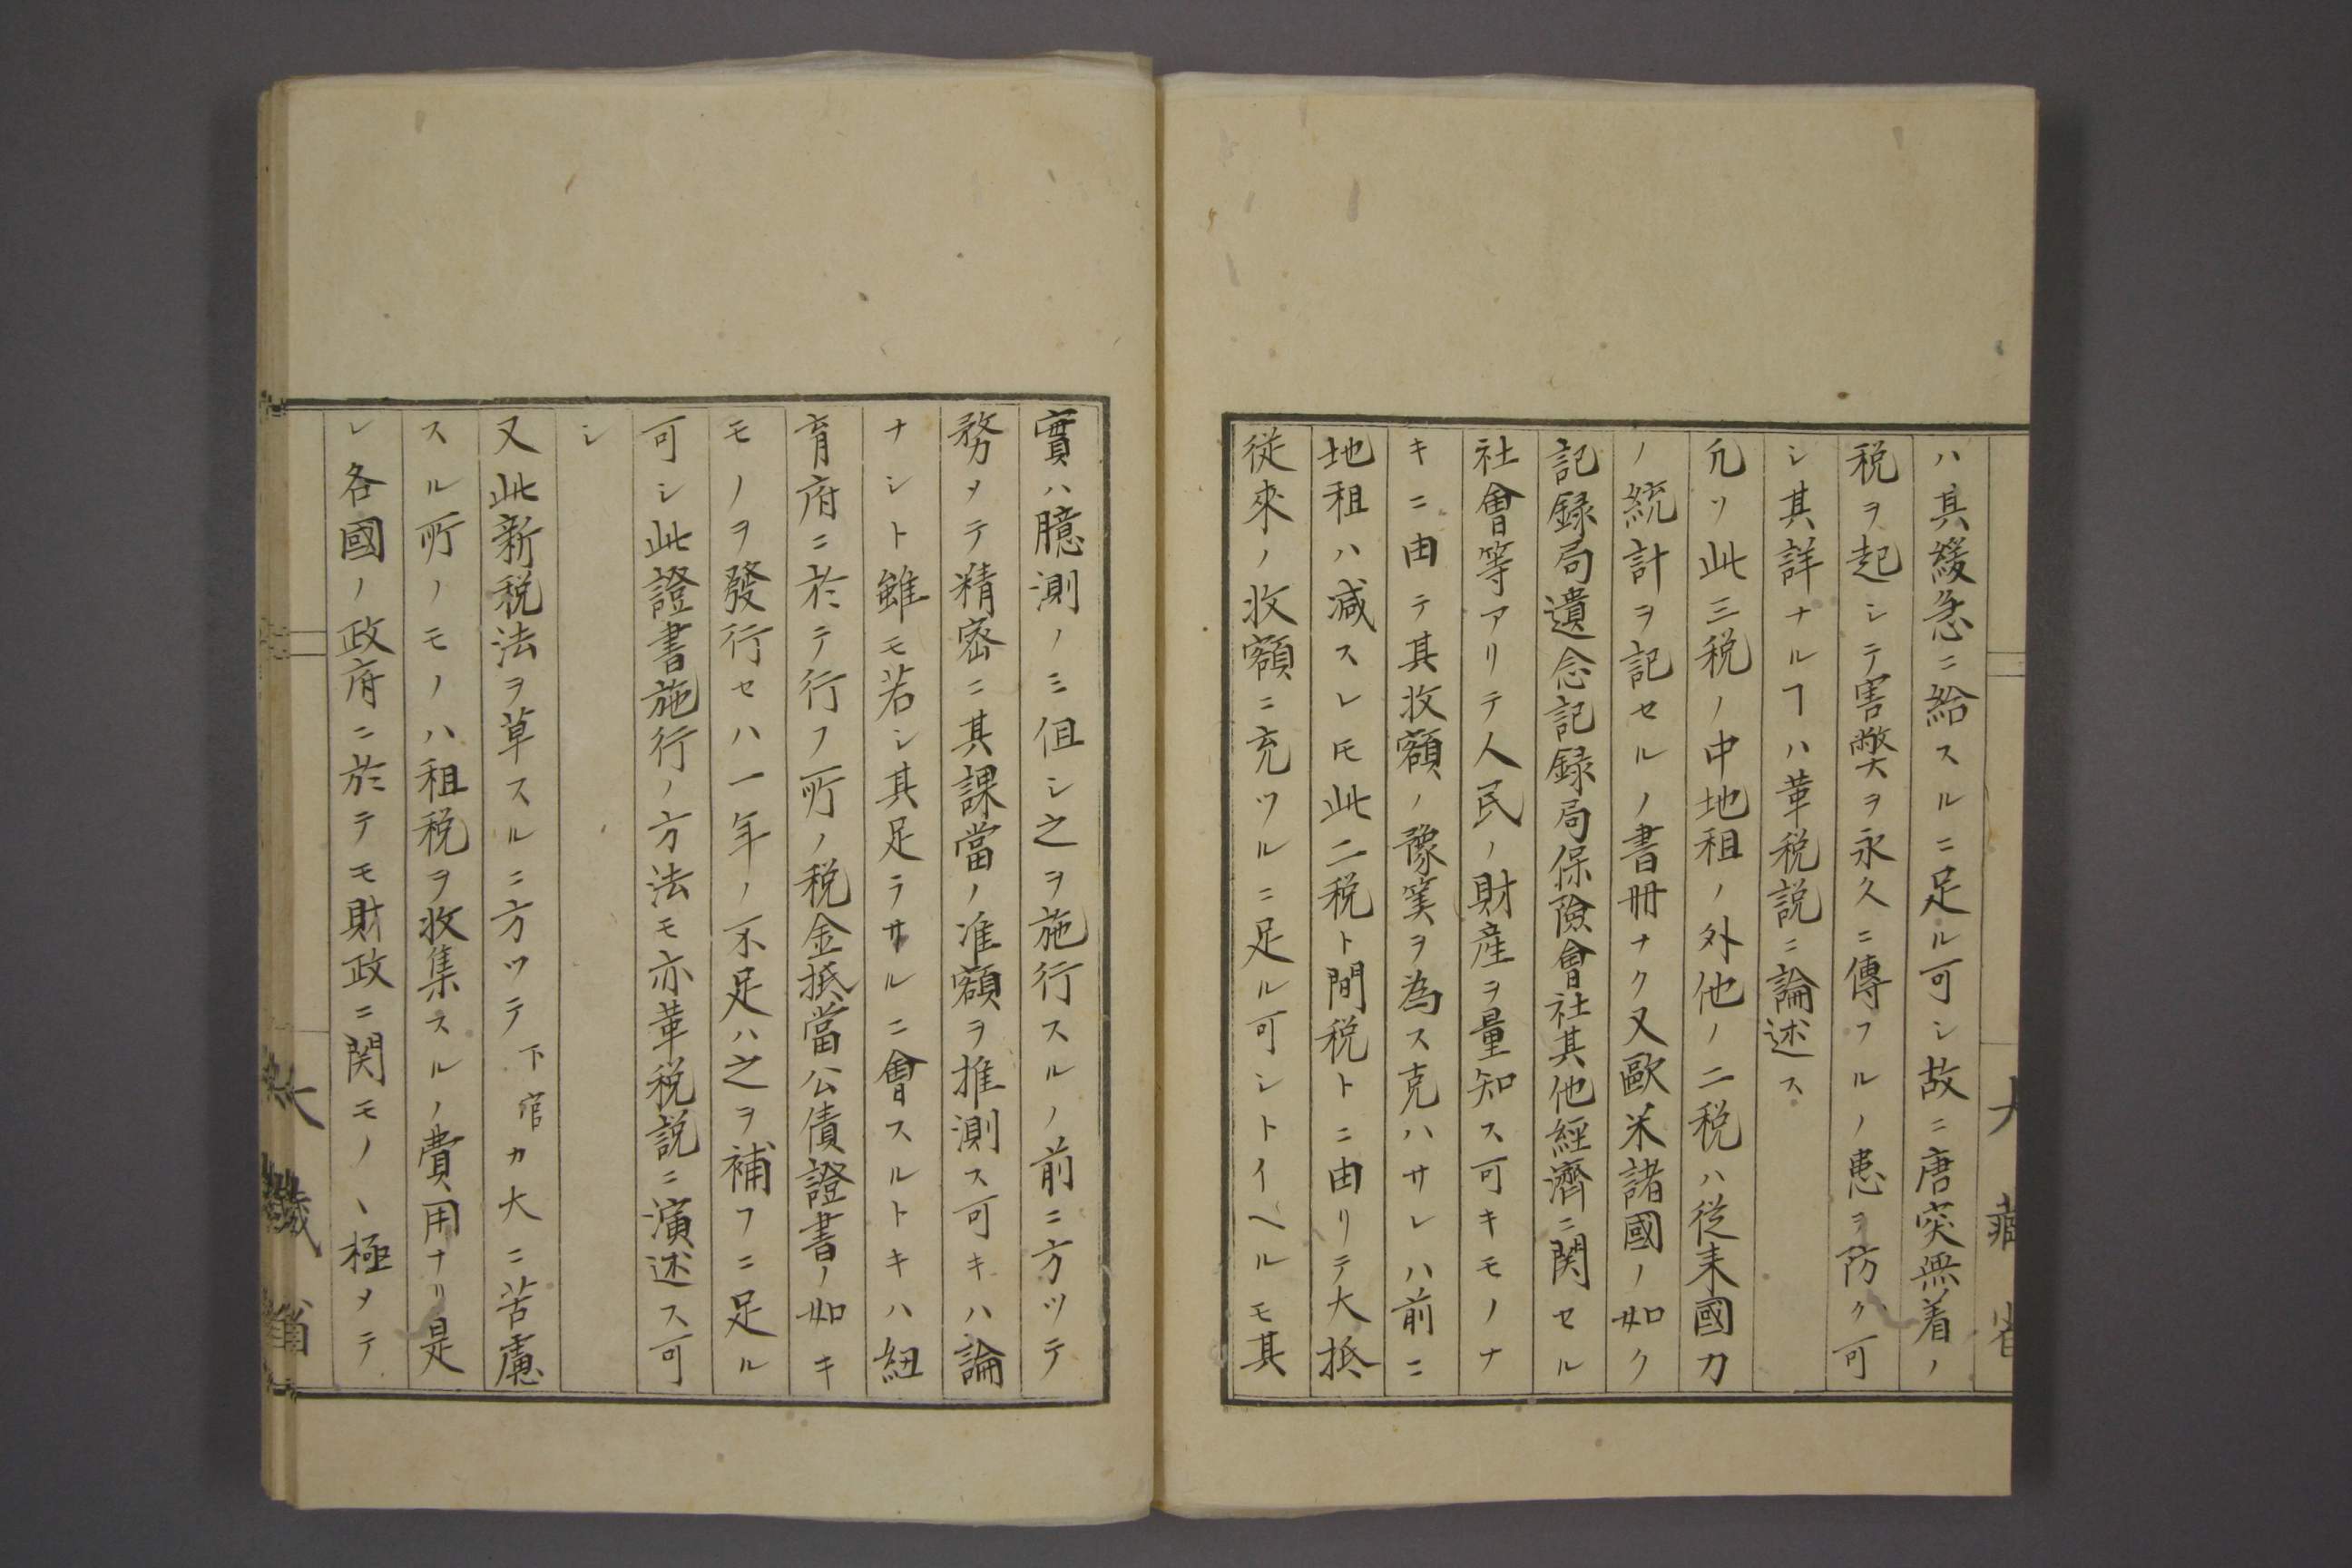 ハ其緩急ニ給スルニ足ル可シ故ニ唐突無着ノ
税ヲ起シテ害弊ヲ永久ニ傳フルノ患ヲ防ク可
シ其詳ナルヿハ革税説ニ論述ス
凡ソ此三税ノ中地租ノ外他ノ二税ハ從来國力
ノ統計ヲ記セルノ書冊ナク又歐米諸國ノ如ク
記録局遺念記録局保險會社其他經濟ニ関セル
社會等アリテ人民ノ財産ヲ量知ス可キモノナ
キニ由テ其收額ノ豫筭ヲ為ス克ハサレハ前ニ
地租ハ減スレ𪜈此二税ト間税トニ由リテ大抵
従來ノ收額ニ充ツルニ足ル可シトイヘルモ其
大藏省
實ハ臆測ノミ但シ之ヲ施行スルノ前ニ方ツテ
務メテ精密ニ其課當ノ准額ヲ推測ス可キハ論
ナシト雖モ若シ其足ラサルニ會スルトキハ紐
育府ニ於テ行フ所ノ税金抵當公債證書ノ如キ
モノヲ發行セハ一年ノ不足ハ之ヲ補フニ足ル
可シ此證書施行ノ方法モ亦革税説ニ演述ス可
シ
又此新税法ヲ草スルニ方ツテ下官カ大ニ苦慮
スル所ノモノハ租税ヲ收集スルノ費用ナリ是
レ各國ノ政府ニ於テモ財政ニ関モノヽ極メテ
大藏省